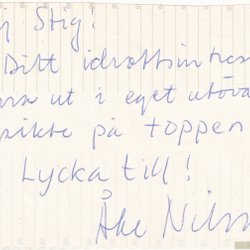 j Stig!
Ditt idrottsintres
ut i eget utöva
sikte på toppen
Lycka till!
Åke Nilss